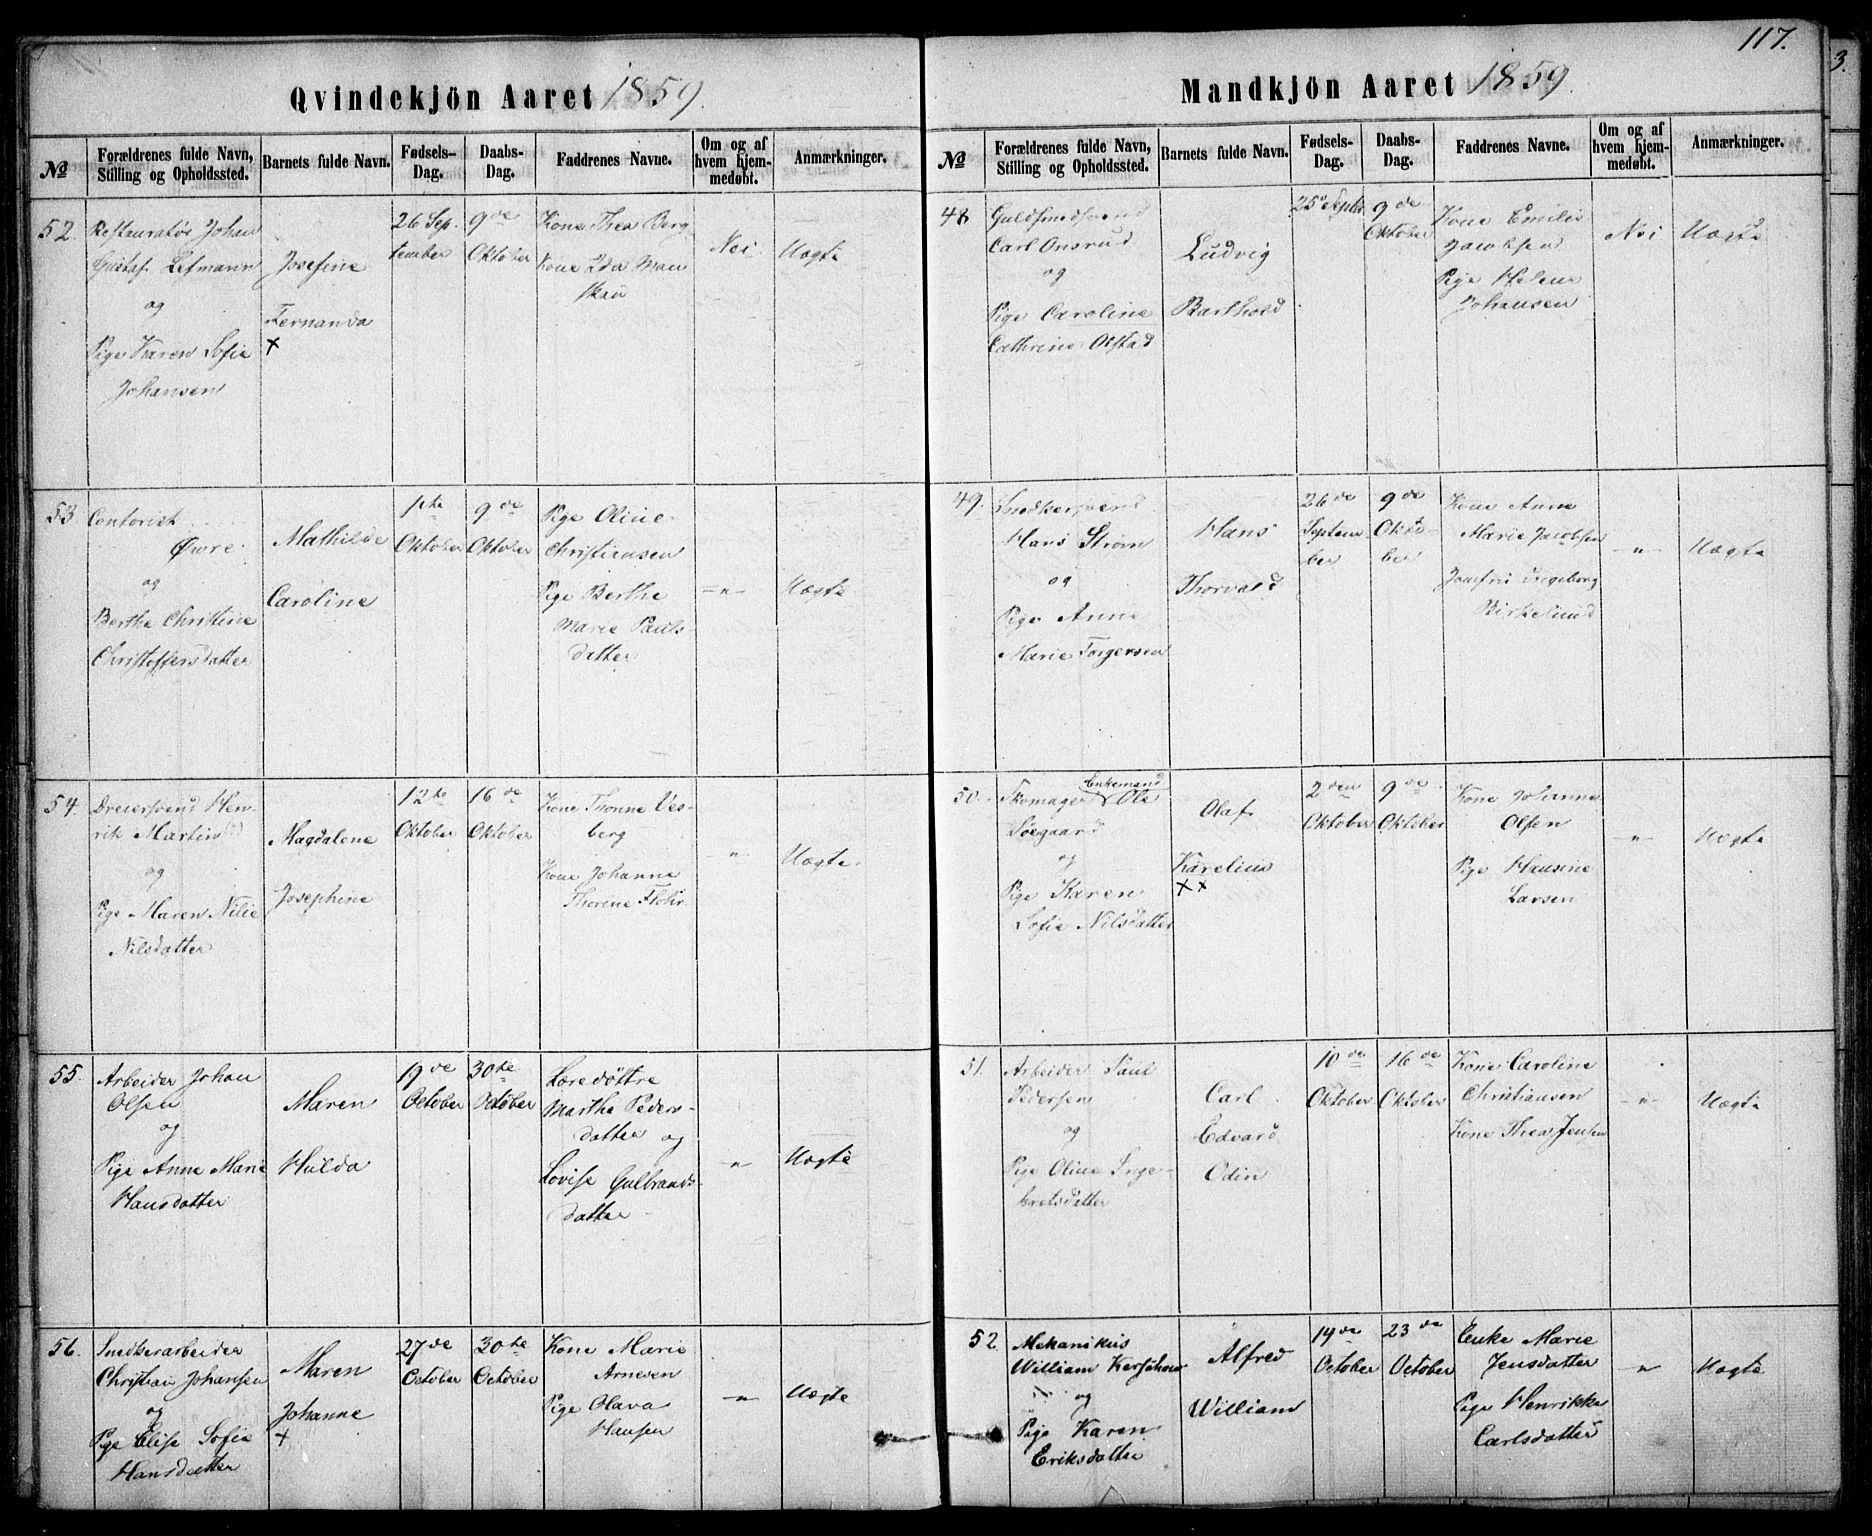 117.
3.
Qvindekjön Aaret 1859.
№
Forældrenes fulde Navn,
Stilling og Opholdssted.
Barnets fulde Navn.
Fødsels-
Dag.
Daabs-
Dag.
Faddrenes Navne.
Om og af
hvem hjem-
medøbt.
Anmærkninger.
52.
Restauratør Johan
Gustaf Lefmann
og
Pige Karen Sofie
Johansen
Josefine
Fernanda
×
26 Sep-
tember
9de
Oktober
Kone Thea Berg
Kone Ida Man
skau
Nei
Uægte
53.
Contorist
Øwre
og
Berthe Christine
Christoffersdatter
Mathilde
Caroline
1ste
Oktober
9de
Oktober
Pige Oline
Christiansen
Pige Berthe
Marie Pauls-
datter
—"—
Uægte
54.
Dreiersvend Hen-
rik Martin
og
Pige Maren Nilie
Nilsdatter
Magdalene
Josephine
12te
Oktober
16de
Oktober
Kone Thonne Ves-
berg
Kone Johanne
Thorine Flohr
—"—
Uægte
55.
Arbeider Johan
Olsen
og
Pige Anne Marie
Hansdatter
Maren
Hulda
19de
October
30te
October
Læredøttre
Marthe Peders-
datter og
Lovise Gulbrands-
datter
—"—
Uægte
56.
Snedkerarbeider
Christian Johansen
og
Pige Elise Sofie
Hansdatter
Maren
Johanne
+
27de
October
30te
October
Kone Marie
Arnesen
Pige Olava
Hansen
—"—
Uægte
Mandkjön Aaret 1859.
№
Forældrenes fulde Navn,
Stilling og Opholdssted.
Barnets fulde Navn.
Fødsels-
Dag.
Daabs-
Dag.
Faddrenes Navne.
Om og af
hvem hjem-
medøbt.
Anmærkninger.
48
Guldsmedsvend
Carl Onsrud
og
Pige Caroline
Cathrine Olstad
Ludvig
Barthold
25de Septbr
9de
Oktober
Kone Emilie
Jacobsen
Pige Helene
Johansen
Nei
Uægte
49.
Snedkersvend
Hans Strøm
og
Pige Anne
Marie Torgersen
Hans
Thorvald
26de
Septem
ber
9de
Okto-
ber
Kone Anne
Marie Jacobsen
Jomfru Ingeborg
Birkelund
—"—
Uægte
50.
Enkemand
Skomager Ole
Søegaard
og
Pige Karen
Sofie Nilsdatter
Olaf
Karelius
××
2den
Oktober
9de
Oktober
Kone Johanne
Olsen
Pige Hansine
Larsen
—"—
Uægte
51.
Arbeider Paul
Pedersen
og
Pige Oline Inge-
bretsdatter
Carl
Edvard
Odin
10de
Oktober
16de
Oktober
Kone Caroline
Christiansen
Kone Thea Jensen
—"—
Uægte
52.
Mekanikus
William
og
Pige Karen
Eriksdatter
Alfred
William
14de
October
23de
October
Enke Marie
Jensdatter
Pige Henrikke
Carlsdatter
—"—
Uægte